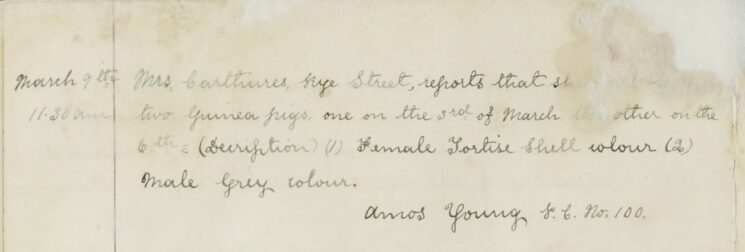 March 9th Mrs Carthures, Rye Street, reports that
11.30 am two Guinea pigs, one on the 3rd of March the other on the
6th (Decription) (1) Female Tortise Shell colour (2)
Male Grey colour.
Amos Young P.C. No. 100.